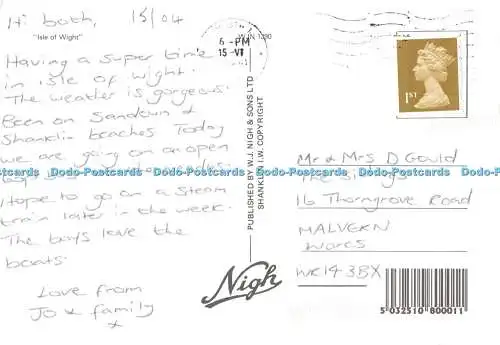 Hi both, 15/04
"Isle of Wight"
W.IN 1290
6-PM
15-VI
Having a super time
in isle of wight.
The weather is gorgeous.
Been on Sandown &
Shanklin beaches Today
we are going on an open
Hope to go on a Steam
train later in the week.
The boys love the
boats.
Love from
Jo & family
x
PUBLISHED BY W.J. NIGH & SONS LTD
SHANKLIN I.W. COPYRIGHT
Nigh
1ST
Mr & Mrs D Gould
The
16 Thorngrove Road
MALVERN
Worcs
WR14 3BX
5 032510 800011
Dodo-Postcards Dodo-Postcards Dodo-Postcards Dodo-Postcards Dodo-Postcards